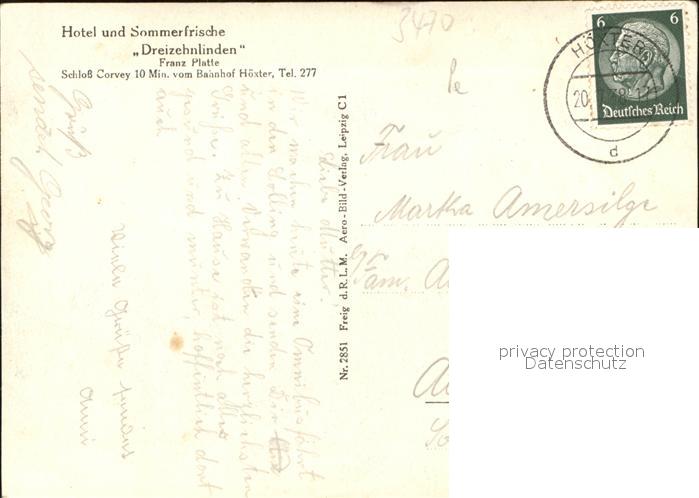 Hotel und Sommerfrische
„Dreizehnlinden"
Franz Platte
Schloß Corvey 10 Min. vom Bahnhof Höxter, Tel. 277
3470
6 6
Deutsches Reich
HÖXTER
20
d
Nr. 2851 Freig d.R.L.M. Aero-Bild-Verlag, Leipzig C1
Frau
Martha Amersilge
Fam. A
Liebe Mutter!
Wir machen heute eine Omnibusfahrt
in den Solling und senden Dir
und allen Verwandten die herzlichsten
Grüße. Zu Hause ist noch alles
gesund und munter, hoffentlich dort
auch
Gruß
send. Georg
Viele Grüße sendet
Anni
privacy protection
Datenschutz